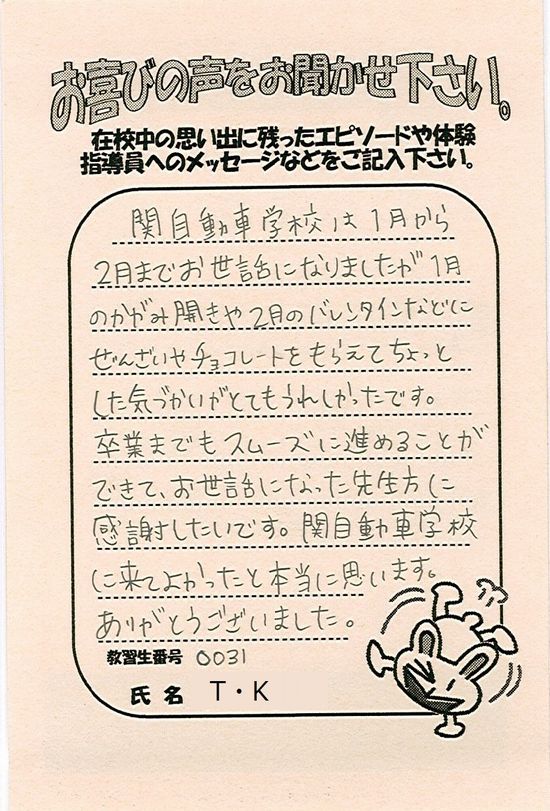 お喜びの声をお聞かせ下さい。
在校中の思い出に残ったエピソードや体験
指導員へのメッセージなどをご記入下さい。
関自動車学校は1月から
2月までお世話になりましたが1月
のかがみ開きや2月のバレンタインなどに
ぜんざいやチョコレートをもらえてちょっと
した気づかいがとてもうれしかったです。
卒業までもスムーズに進めることが
できて、お世話になった先生方に
感謝したいです。関自動車学校
に来てよかったと本当に思います。
ありがとうございました。
教習生番号 0031
氏名 T・K